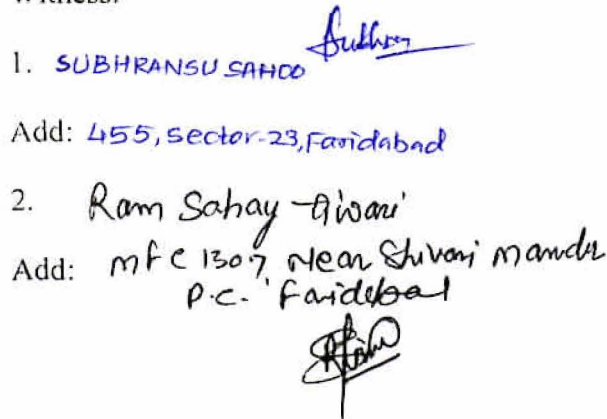 Witness:
1. SUBHRANSU SAHOO
Add: 455, Sector-23, Faridabad
2. Ram Sahay Tiwari
Add: MFC 1307 Near Shivari Mandir
P.C. Faridabad